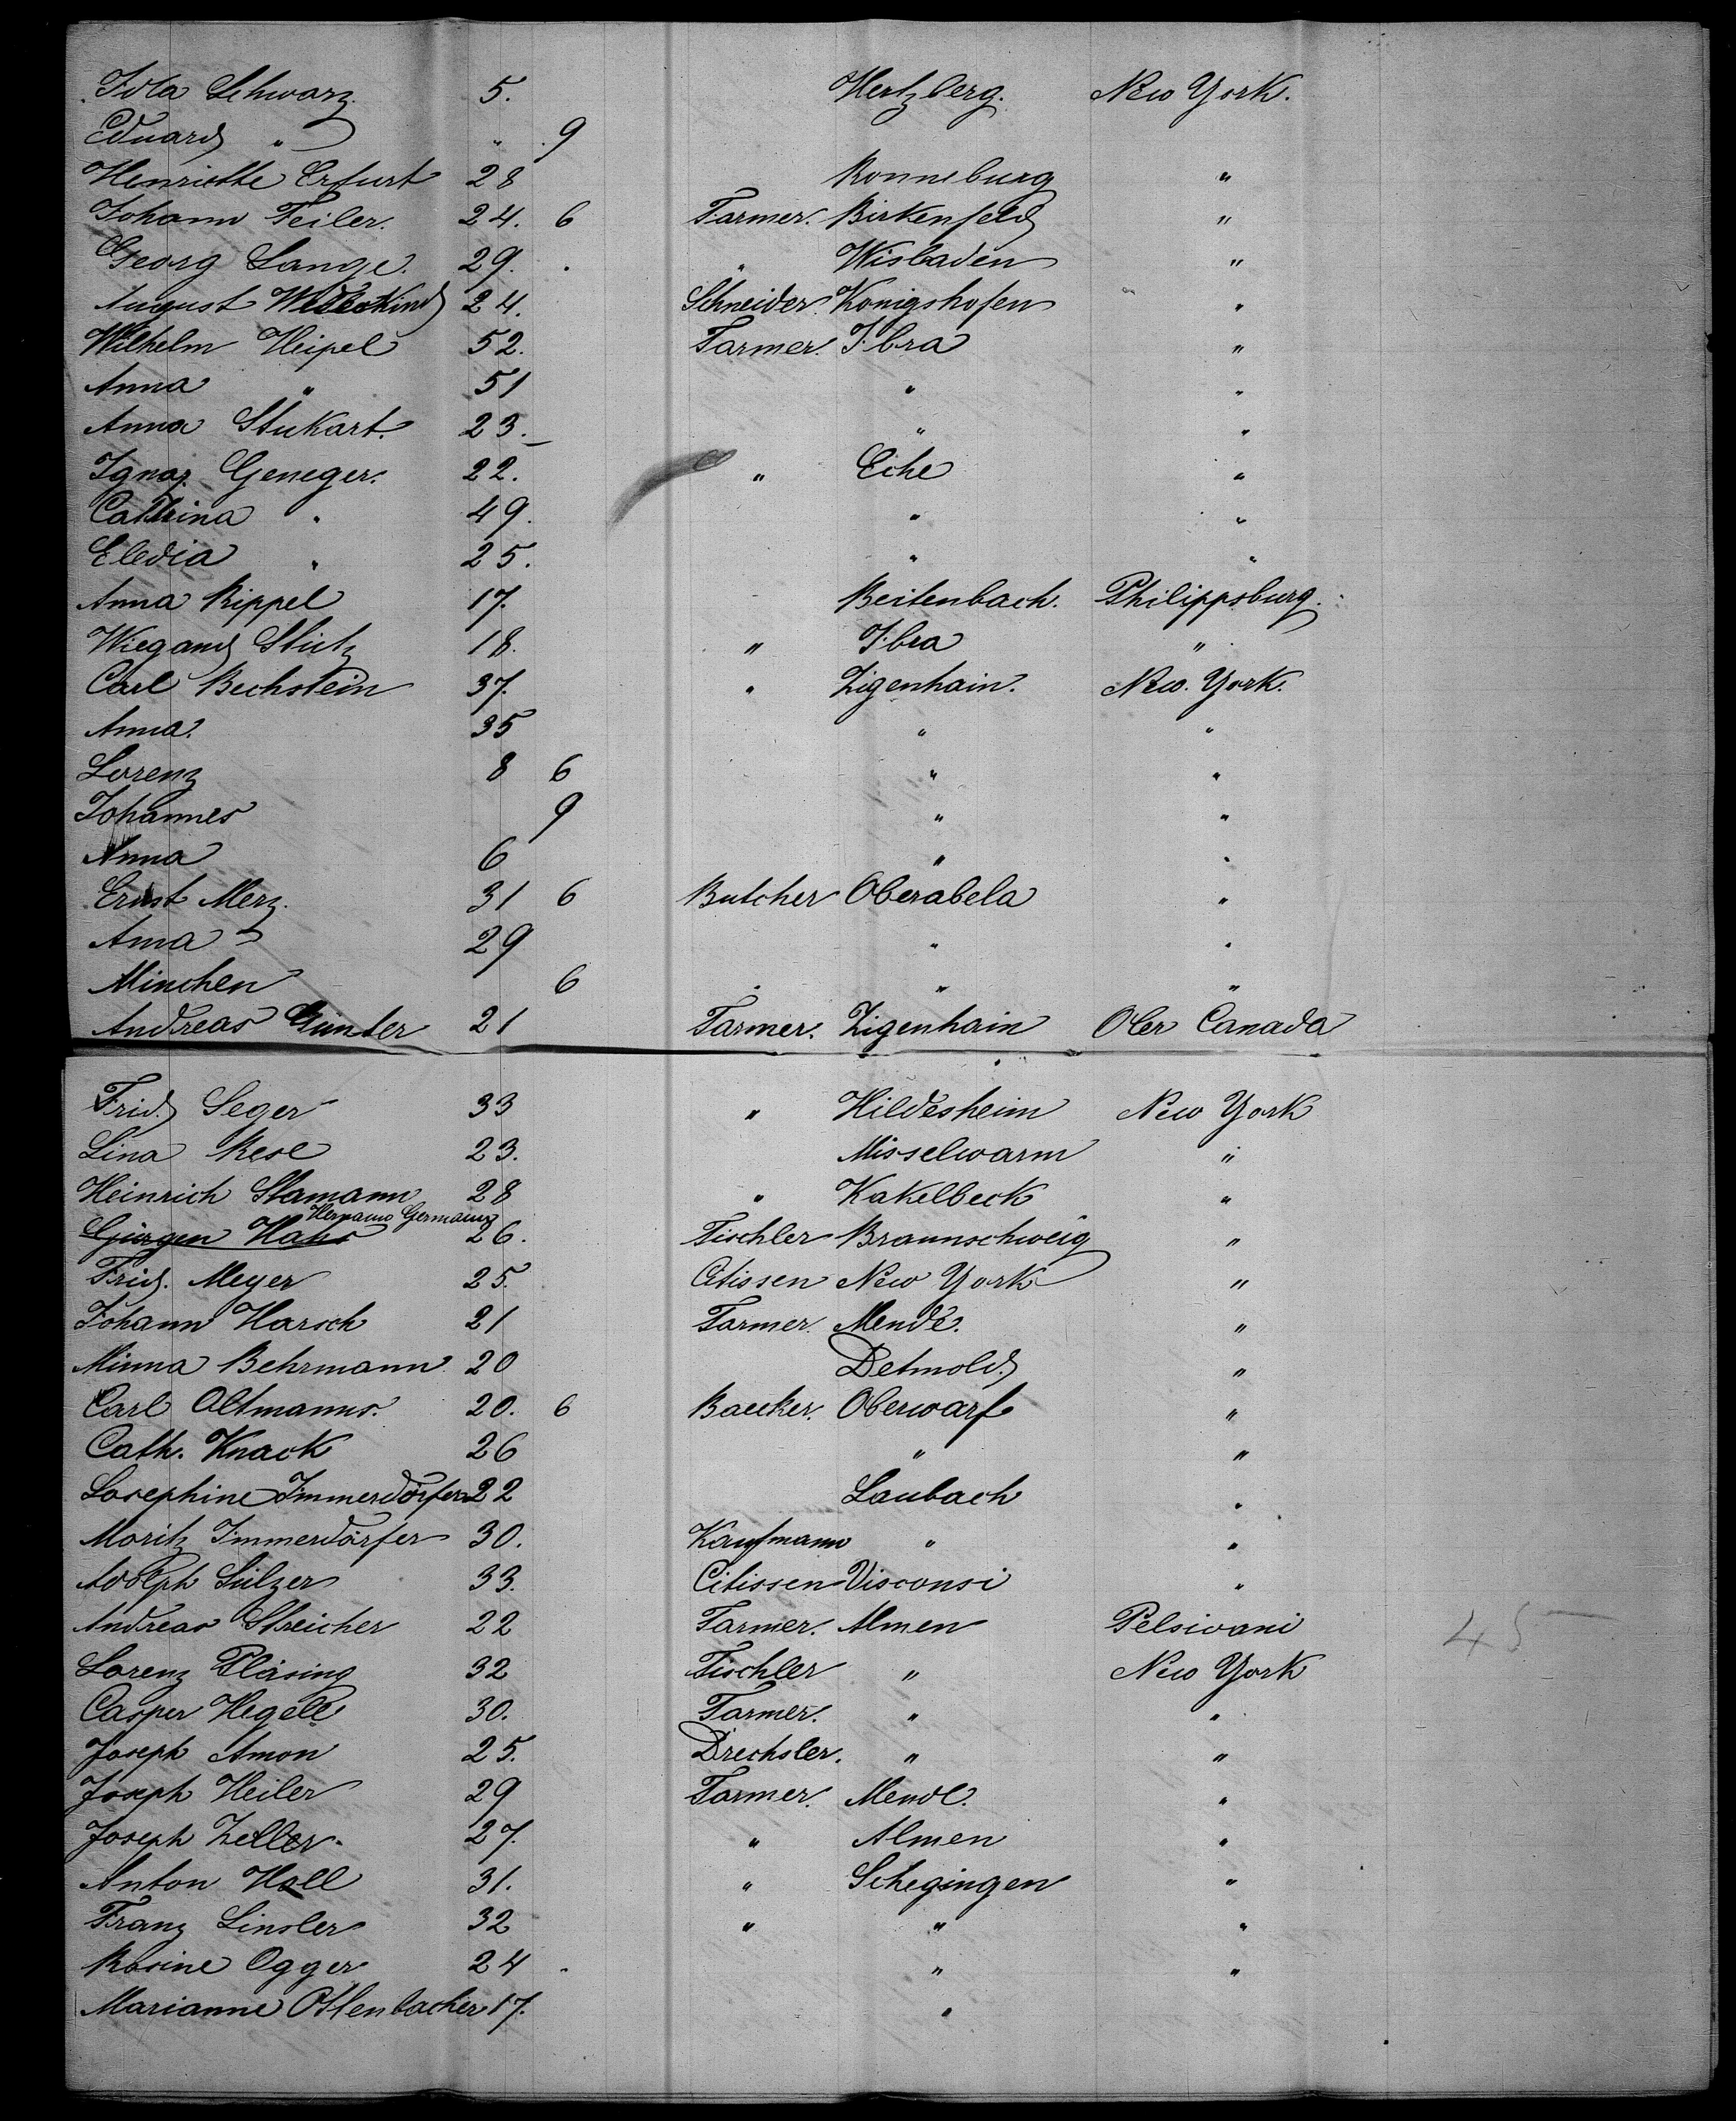 Ida Schwarz 5. Hertzberg. New York.
Eduard " " 9
Henriette Erfurt 28 Ronneburg "
Johann Feiler. 24. 6 Farmer. Birkenfeld "
Georg Lange. 29. " Wisbaden "
August 24. Schneider. Konigshofen "
Wilhelm Heipel 52. Farmer. Ibra "
Anna " 51 " "
Anna Stukart. 23. " "
Ignaz Geneger. 22. " Eche "
Cathrina " 49. " "
Eledia " 25. " "
Anna Rippel 17. Beitenbach. Philippsburg.
Wiegand Stutz 18. " Ibra "
Carl Bechstein 37. " Zigenhain. New. York.
Anna. 35 " "
Lorenz 8 6 " "
Johannes 9 " "
Anna 6 " "
Ernst Merz. 31 6 Butcher Oberabela "
Anna 29 " "
Minchen 6 " "
Andreas Günter 21 Farmer. Zigenhain Ober Canada
Frid. Seger 33 " Hildesheim New York
Lina Rese 23. Misselwarm "
Heinrich Stamann 28 " Kakelbeck "
Hermann Germann
Gürgen Hahs 26. Tischler Braunschweig "
Frid. Meyer 25. Citissen New York "
Johann Harsch 21 Farmer. Mende. "
Minna Behrmann 20 Detmold. "
Carl Oltmanns. 20. 6 Baecker. Oberwarf "
Cath. Knack 26 " "
Josephine Immerdörfer 22 Laubach "
Moritz Immerdörfer 30. Kaufmann " "
Adolph Sulzer 33. Citissen Visconsi "
Andreas Streicher 22 Farmer. Almen Pelsivani 45
Lorenz Pläsing 32 Tischler " New York
Casper Hegele 30. Farmer. " "
Joseph Amon 25. Drechsler. " "
Joseph Heiler 29 Farmer. Mende. "
Joseph Zeller. 27. " Almen "
Anton Holl 31. " Schegingen "
Franz Linsler 32 " " "
Rosine Ogger 24 " "
Marianne Ottenbacher 17. "